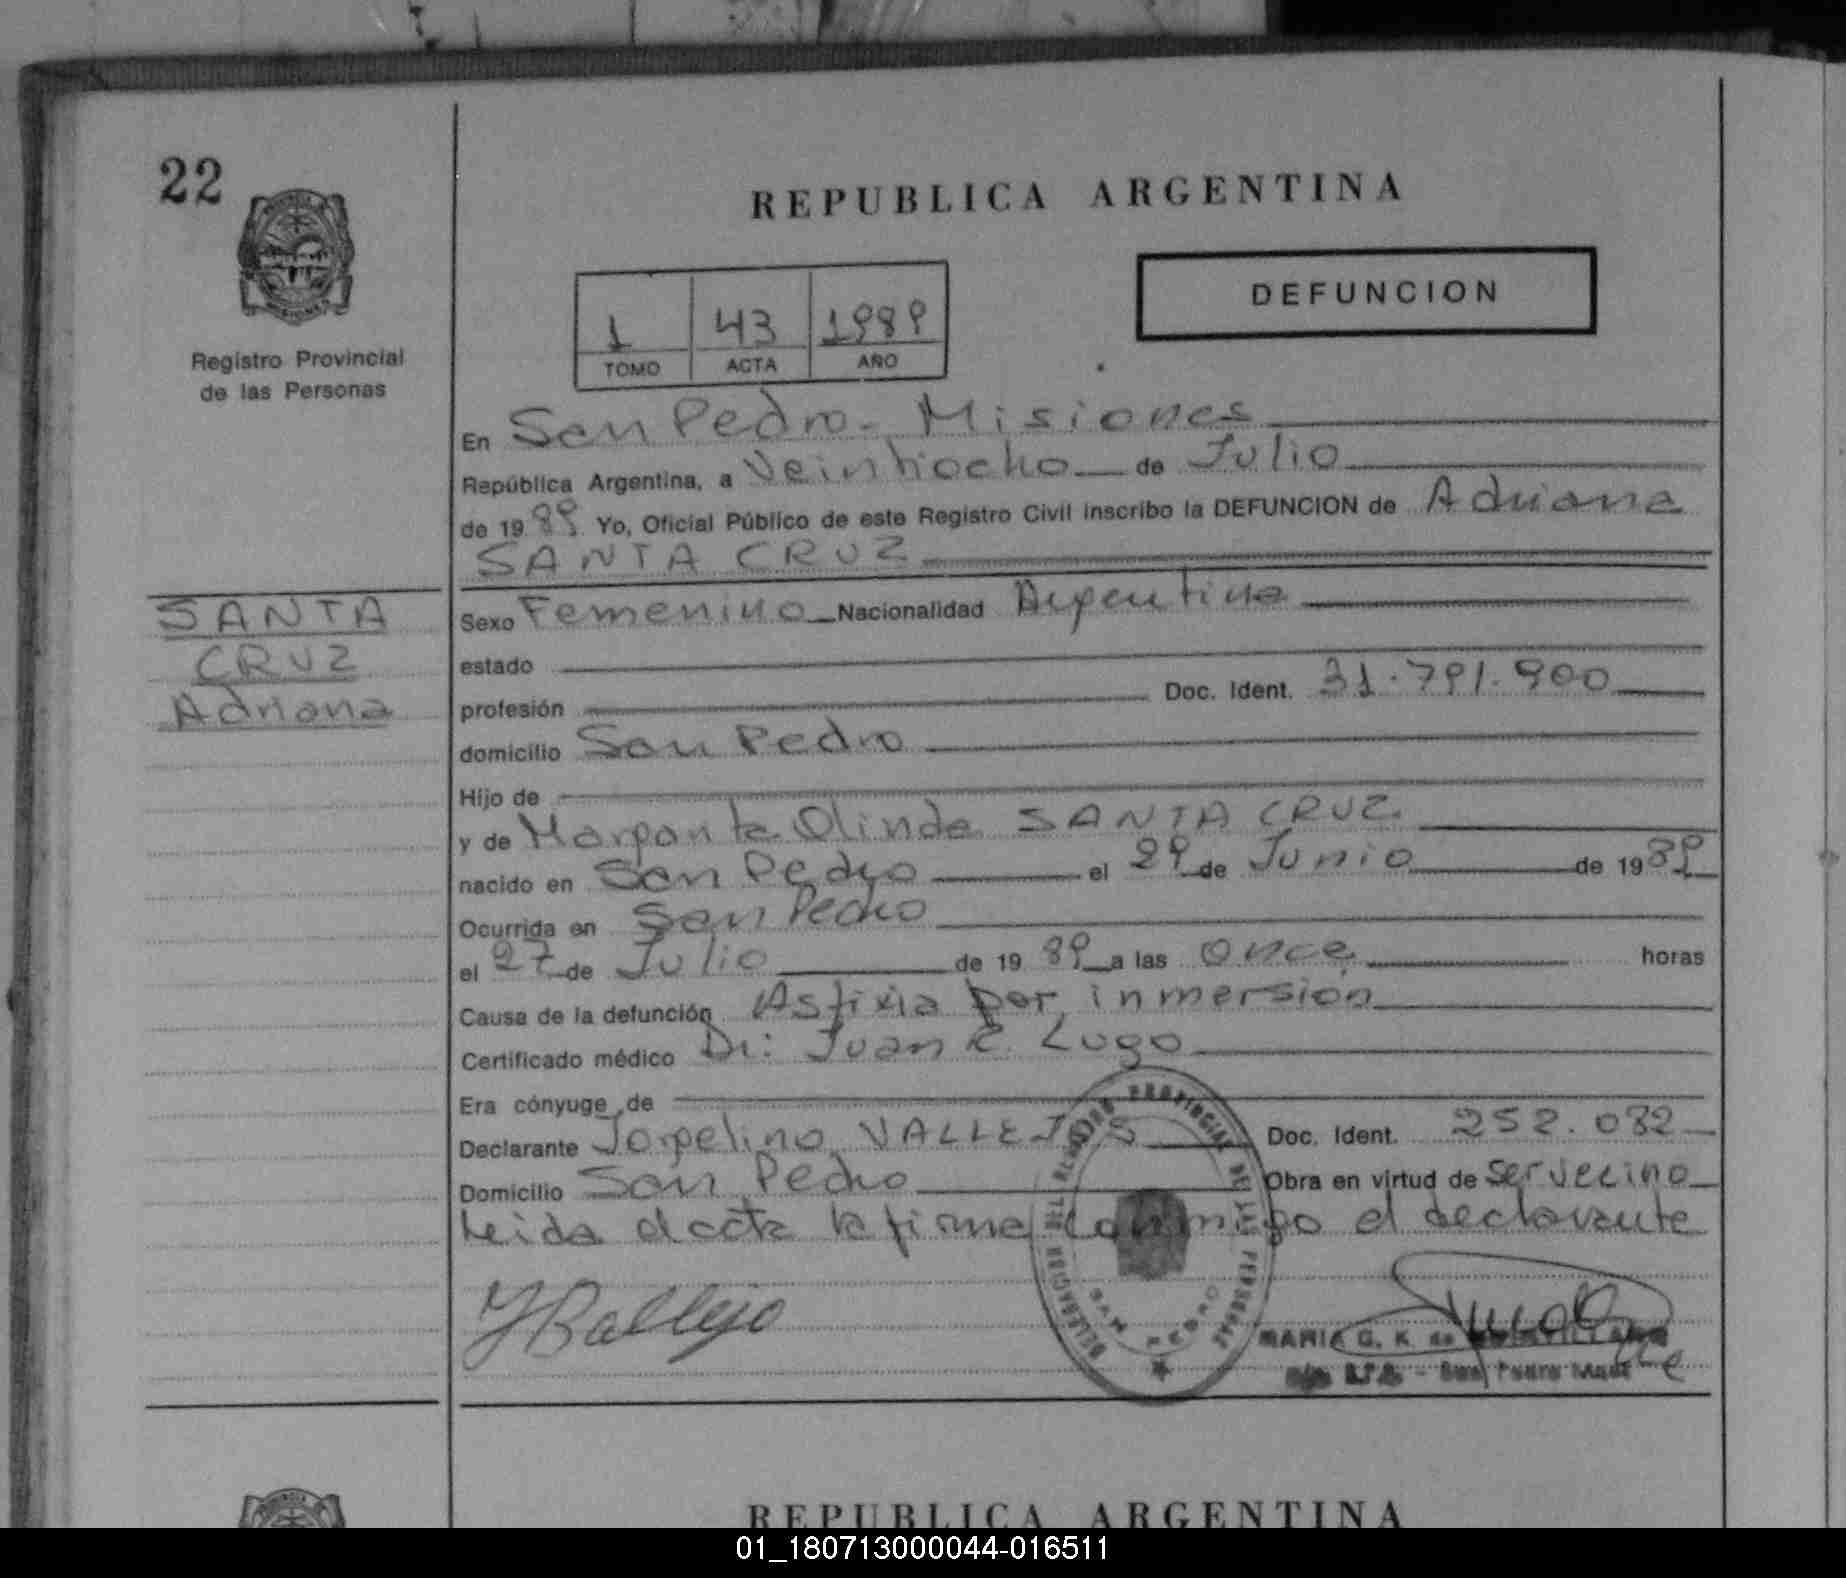 22
REPUBLICA ARGENTINA
DEFUNCION
1 43 1989
TOMO ACTA AÑO
Registro Provincial
de las Personas
En San Pedro - Misiones
República Argentina, a Veintiocho de Julio
de 1989 Yo, Oficial Público de este Registro Civil inscribo la DEFUNCION de Adriana
SANTA CRUZ
SANTA
CRUZ
Adriana
Sexo Femenino Nacionalidad Argentina
estado
profesión Doc. Ident. 31.791.900
domicilio San Pedro
Hijo de
y de Margarita Olinda SANTA CRUZ
nacido en San Pedro el 29 de Junio de 1989
Ocurrida en San Pedro
el 27 de Julio de 1989 a las once horas
Causa de la defunción Asfixia por inmersión
Certificado médico Dr: Juan R. Lugo
Era cónyuge de
Declarante Jorgelino VALLEJOS Doc. Ident. 252.082
Domicilio San Pedro Obra en virtud de ser vecino
Leida el acta la firma conmigo el declarante
DELEGACION DEL REGISTRO PROVINCIAL DE LAS PERSONAS
SAN PEDRO
JBallejo
MARIA G. K. de
San Pedro
REPUBLICA ARGENTINA
01_180713000044-016511